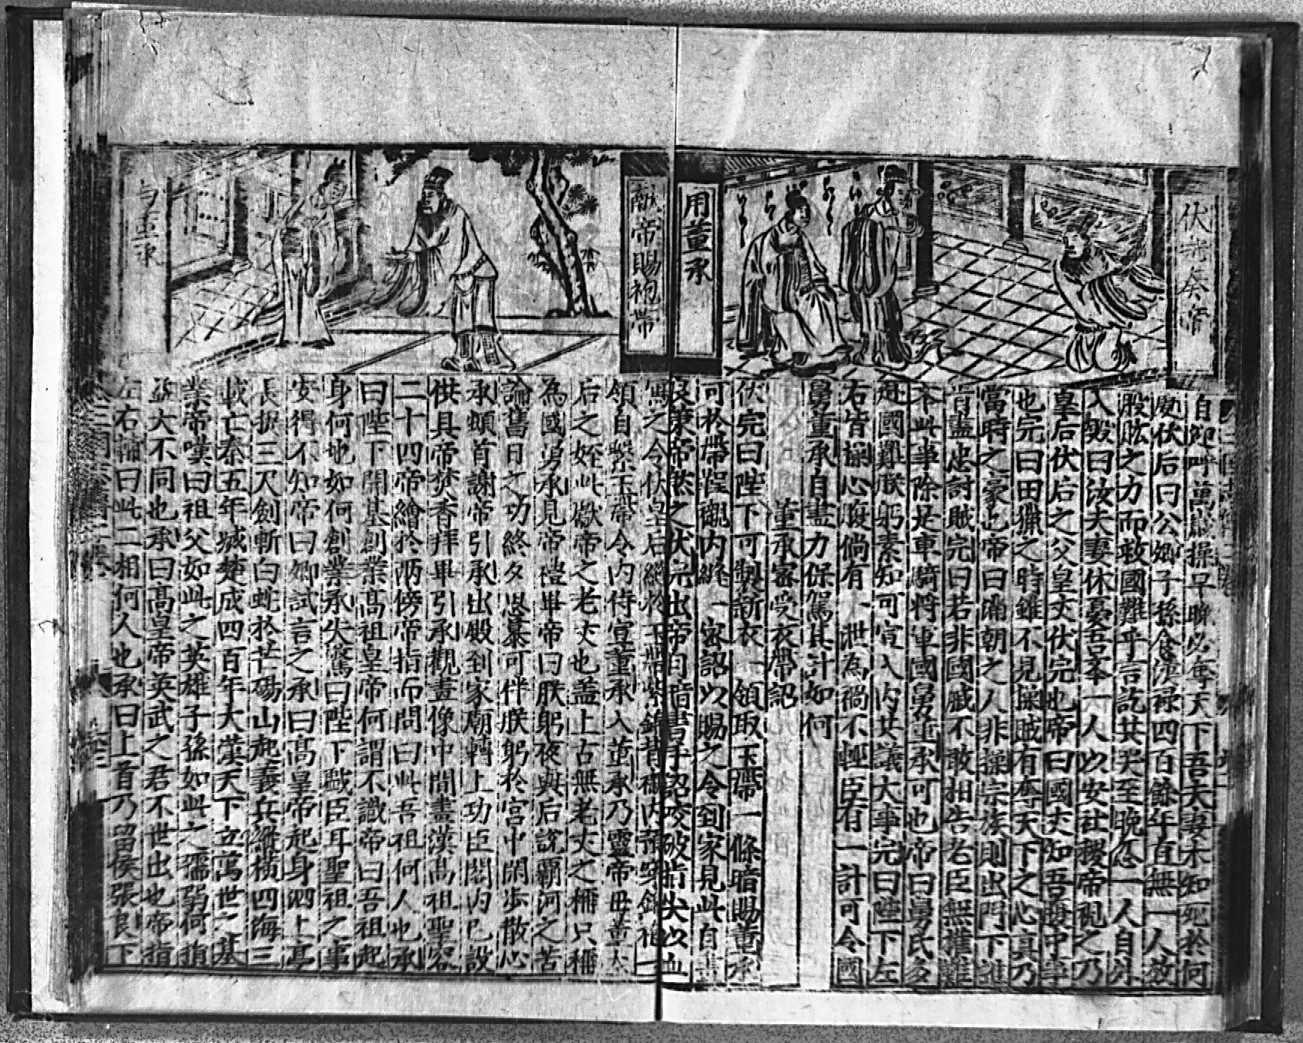 伏完奏帝
用董承
自卸呼萬歲操早晚必奪天下吾夫妻未知死於何
處伏后曰公卿子孫食漢祿四百餘年直無一人效
股肱之力而救國難乎言訖其哭至晚忽一人自外
入殿曰汝夫妻休憂吾奉一人以安社稷帝視之乃
皇后伏后之父皇丈伏完也帝曰國丈知吾腹中事
也完曰田獵之時雖不見操賊有奪天下之心真乃
當時之豪也帝曰滿朝之人非操宗族則出門下誰
肯盡忠討賊完曰若非國戚不敢相告老臣無權難
奉此事除是車騎將軍國舅董承可也帝曰舅氏多
赴國難朕躬素知可宣入內共議大事完曰陛下左
右皆操心腹倘有一泄為禍不輕臣有一計可令國
舅董承自盡力保駕其計如何
董承密受衣帶詔
伏完曰陛下可製新衣一領取玉帶一條暗賜董承
可於帶裎襯內縫一密詔以賜之令到家見此自畫
良策帝然之伏完出帝自諧書手詔咬破指尖以血
寫之令伏皇后縫於玉帶紫錦背襯內預穿錦袍一
領自繫玉帶令內侍宣董承入董承乃靈帝母董太
后之姪此獻帝之老丈也蓋上古無老丈之稱只稱
為國舅承見帝禮畢帝曰朕躬夜與后說霸河之苦
論舊日之功終夕思慕可伴朕躬於宮中閑步散心
承頓首謝帝引承出殿到家廟轉上功臣閣內已設
供具帝焚香拜畢引承觀畫像中間畫漢高祖聖容
二十四帝繪於兩傍帝指而問曰此吾祖何人也承
曰陛下開基創業高祖皇帝何謂不識帝曰吾祖起
身何地如何創業承大驚曰陛下戲臣耳聖祖之事
安得不知帝曰卿試言之承曰高皇帝起身泗上亭
長提三尺劍斬白蛇於芒碭山起義兵縱橫四海三
載亡秦五年滅楚成四百年大漢天下立萬世之基
業帝嘆曰祖父如此之英雄子孫如此之孺弱何獨
益大不同也承曰高皇帝英武之君不世出也帝指
左右輔曰此二相何人也承曰上首乃留侯張良下
獻帝賜袍帶
与董承